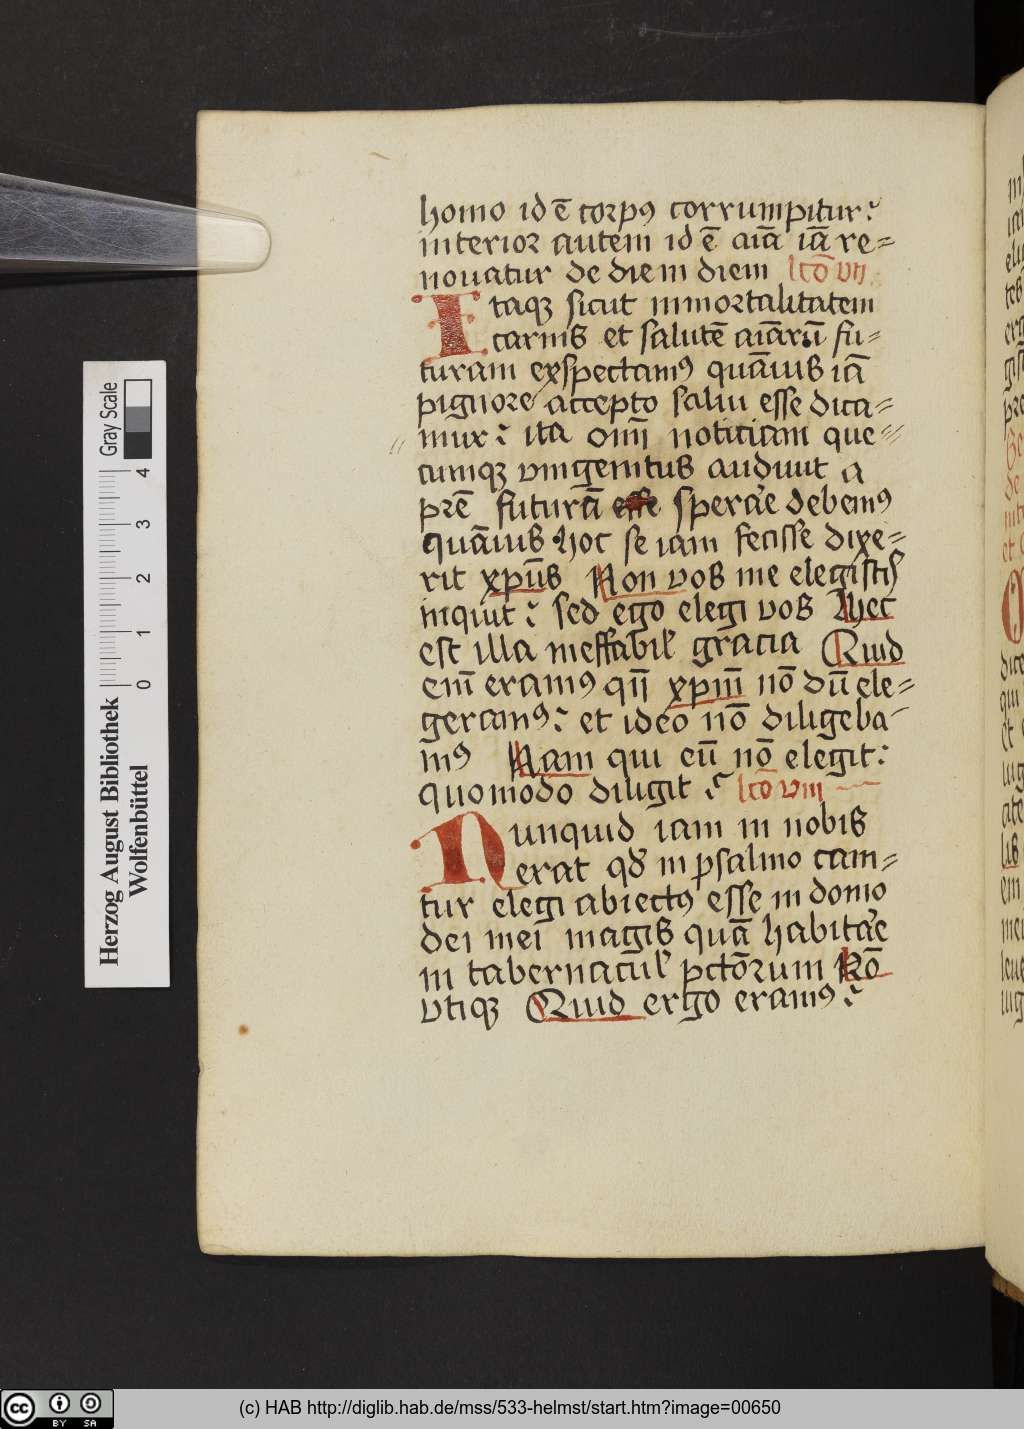 homo id ē corpꝰ corrumpitur:
interior autem id ē aīa iā re=
nouatur de die in diem lcō vii
Itaqꝫ sicut inmortalitatem
carnis et salutē aīarū fu=
turam exspectamꝰ quāuis iā
pignore accepto salui esse dica=
mur: ita oīm noticiam que=
cumqꝫ vnigenitus audiuit a
prē futurā esse sperare debemꝰ
quāuis hoc se iam fecisse dixe=
rit xpūs Non vos me elegistis
inquit: sed ego elegi vos Hec
est illa ineffabil gracia Quid
eīm eramꝰ qn̄ xpm̄ nō dū ele=
geramꝰ: et ideo nō diligeba-
mꝰ Nam qui eū nō elegit:
quomodo diligit : lcō viii
Nunquid iam in nobis
erat qd in psalmo cam=
tur elegi abiectꝰ esse in domo
dei mei magis quā habitare
in tabernacul pctōrum Nō
vtiqꝫ Quid ergo eramꝰ:
Herzog August Bibliothek
Wolfenbüttel
0 1 2 3 4
Gray Scale
(c) HAB http://diglib.hab.de/mss/533-helmst/start.htm?image=00650
cc BY SA